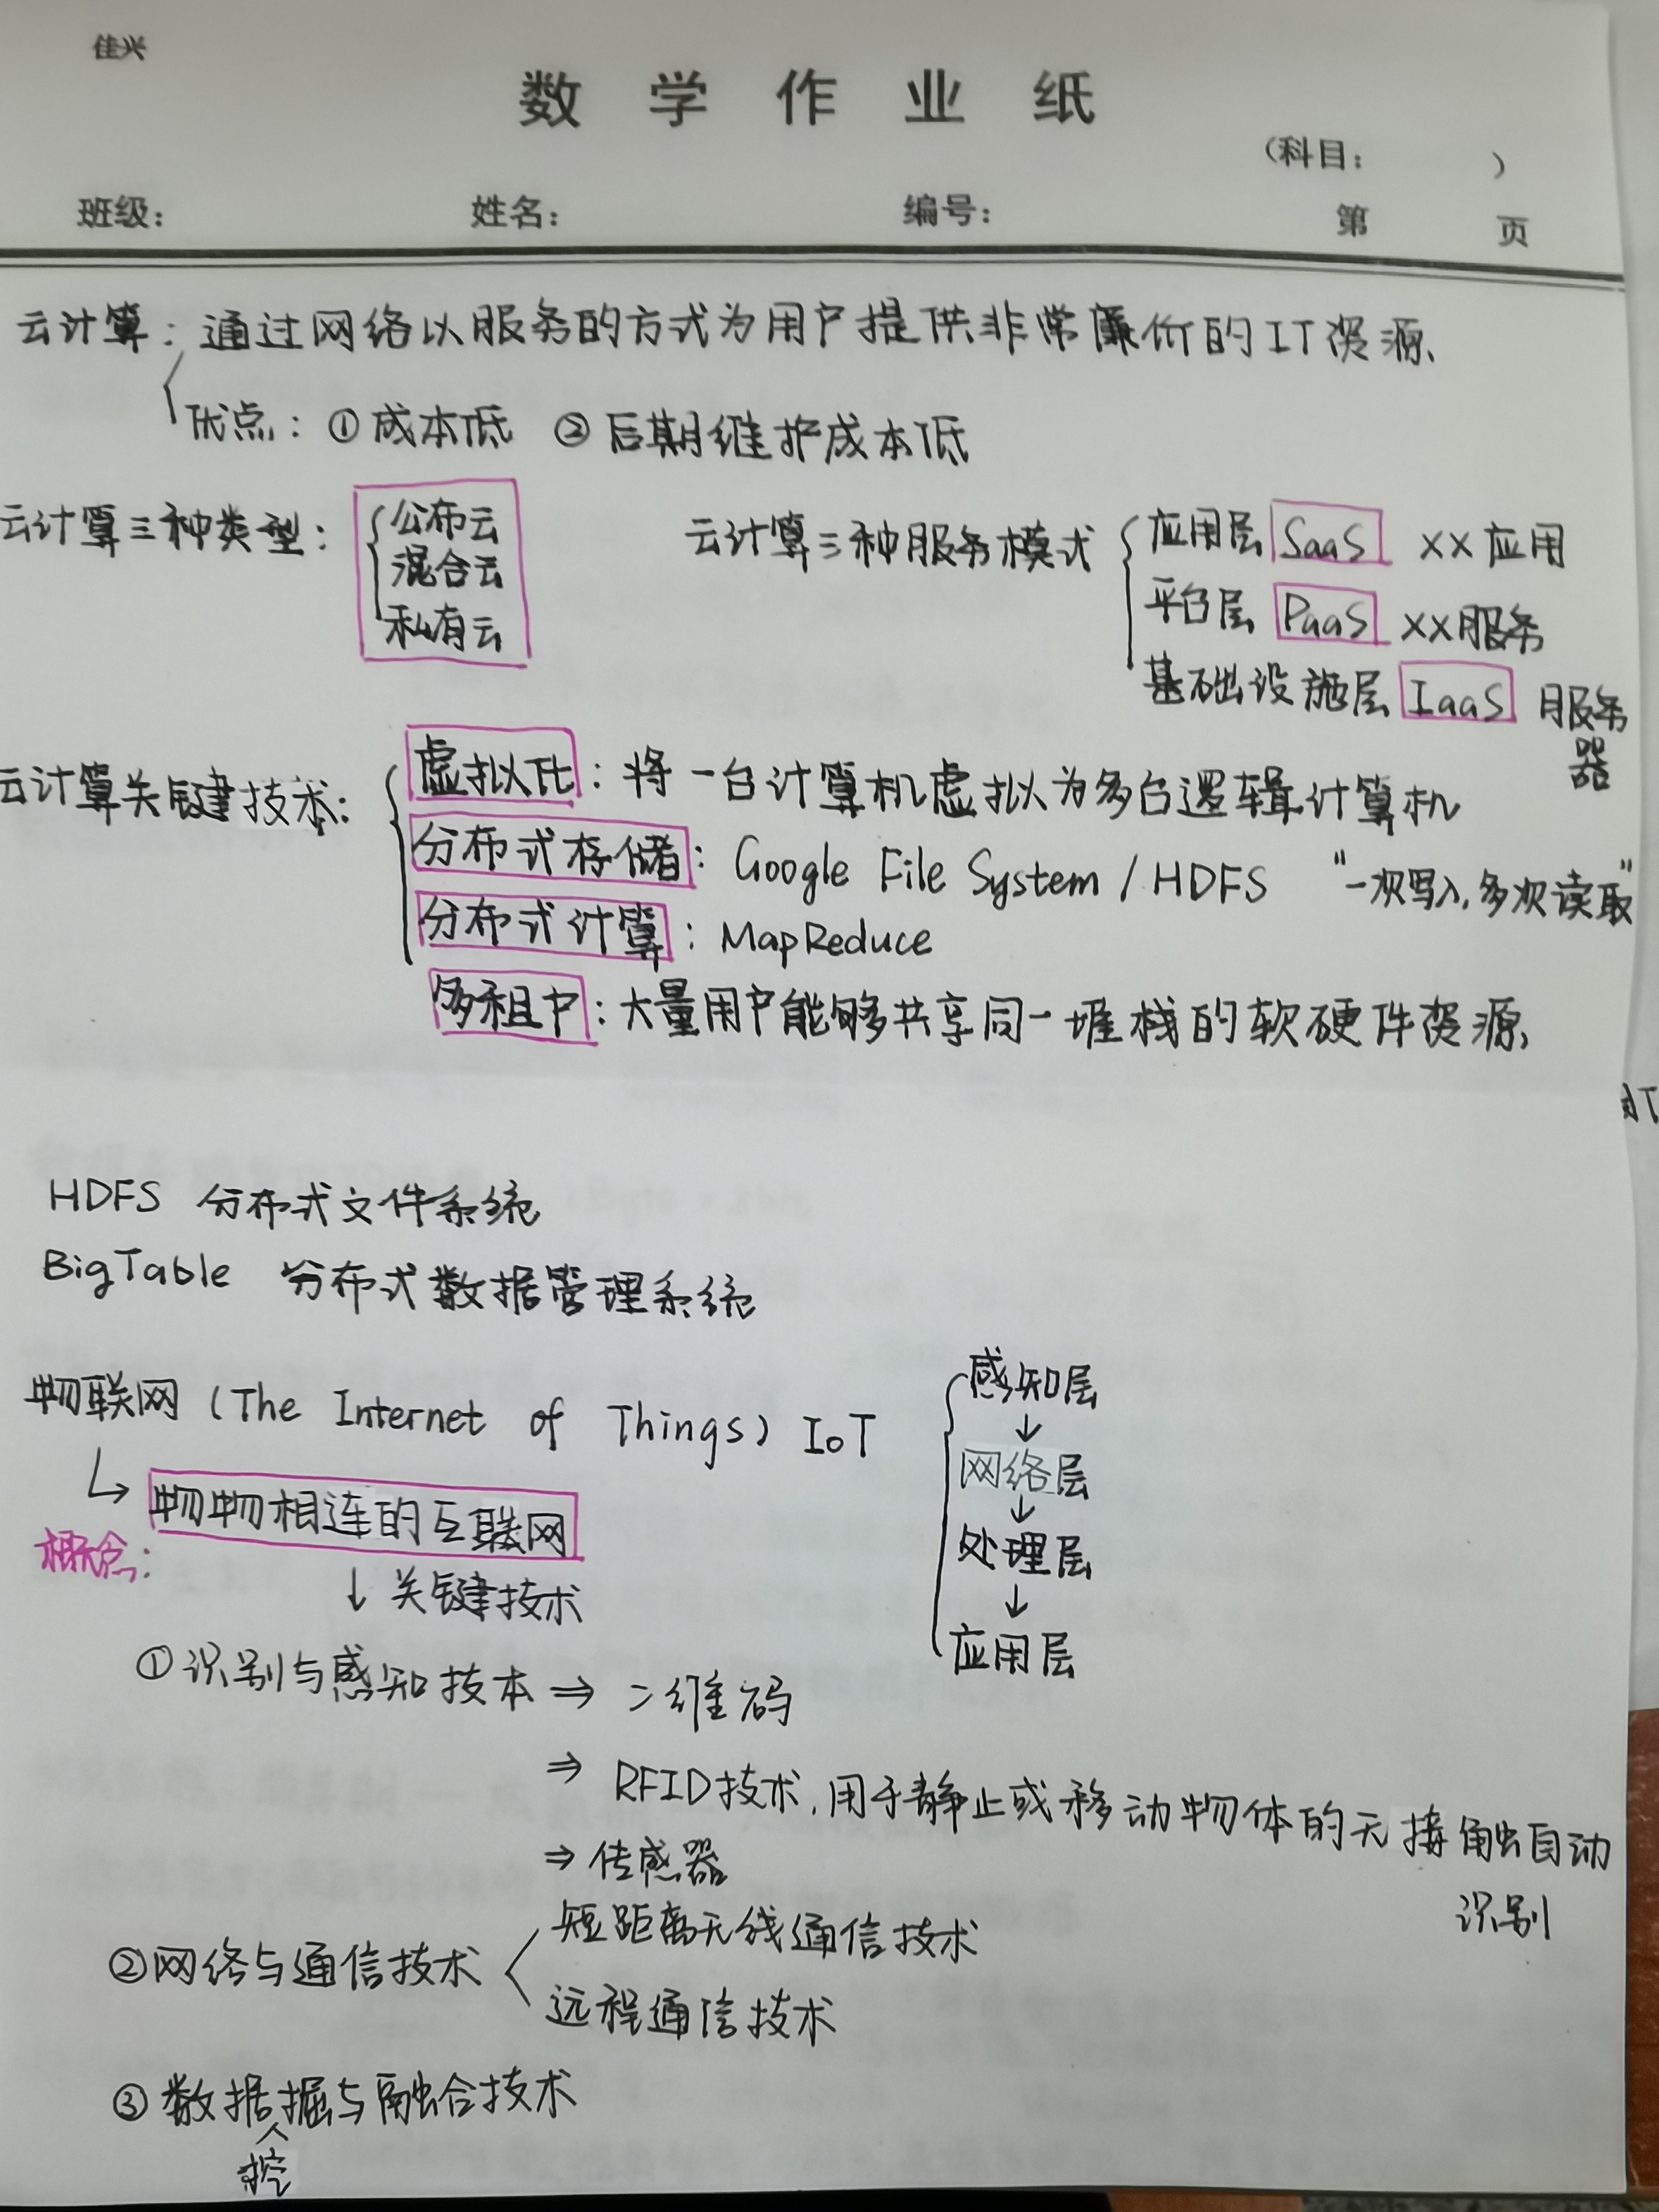 佳兴
数学作业纸
(科目: )
班级: 姓名: 编号: 第 页
云计算: 通过网络以服务的方式为用户提供非常廉价的IT资源、
优点: ①成本低 ②后期维护成本低
云计算三种类型:
公布云
混合云
私有云
云计算三种服务模式
应用层 SaaS XX应用
平台层 PaaS XX服务
基础设施层 IaaS 服务器
云计算关键技术:
虚拟化: 将一台计算机虚拟为多台逻辑计算机
分布式存储: Google File System / HDFS "一次写入,多次读取"
分布式计算: MapReduce
多租户: 大量用户能够共享同一堆栈的软硬件资源、
HDFS 分布式文件系统
BigTable 分布式数据管理系统
物联网 (The Internet of Things) IoT
感知层
↓
网络层
↓
处理层
↓
应用层
↳ 物物相连的互联网
概念:
↓ 关键技术
①识别与感知技本 ⇒ 二维码
⇒ RFID技术,用于静止或移动物体的无接触自动
识别
⇒ 传感器
②网络与通信技术
短距离无线通信技术
远程通信技术
③数据挖掘与融合技术